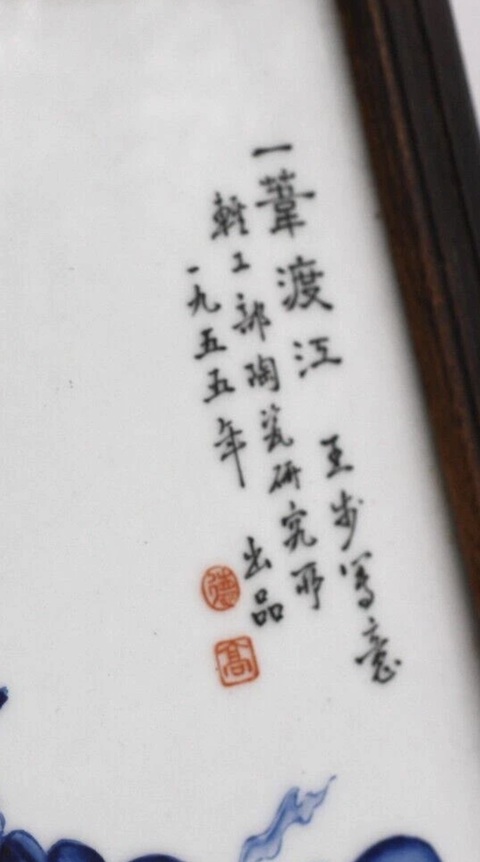 一葦渡江 王步寫意
轻工部陶瓷研究所
一九五五年 出品
德
高